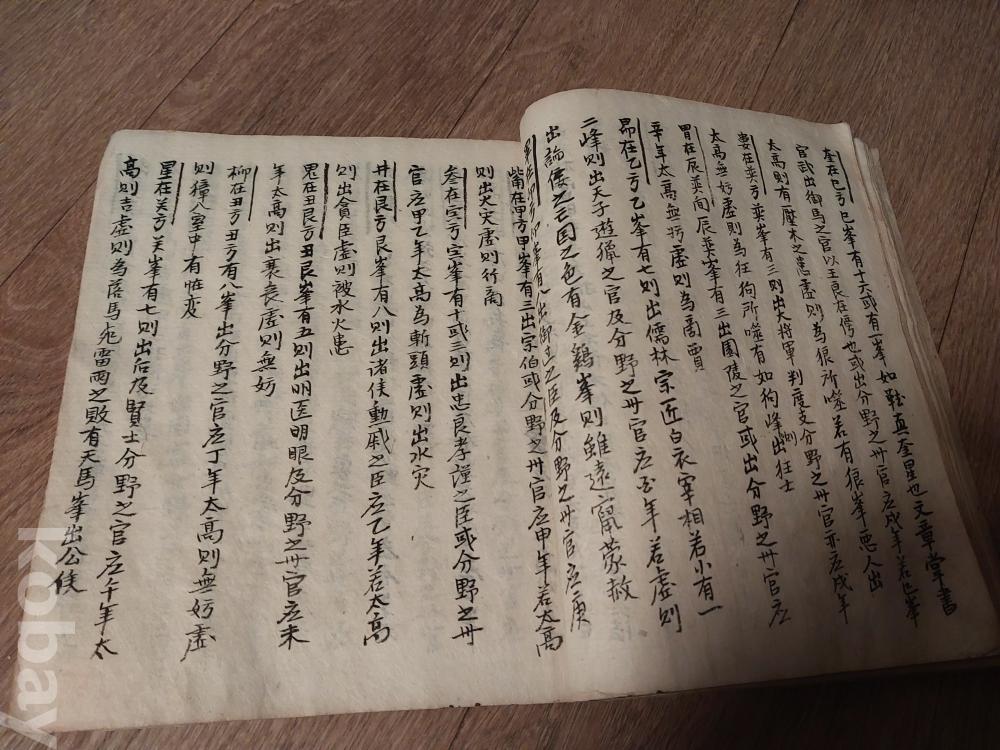 奎在巳方巳峯有十六或有一峯如戟直奎星也文章掌書
官武出御馬之官以王良在傍也或出分野之卅官应戌年若巳峯
太高則有壓木之患虛則為狼所噬若有狼峯惡人出
娄在巽方巽峯有三則出大将軍判度支分野之卅官亦应戌年
太高無妨虛則為狂狗所噬有如狗峰則出狂士
胃在辰巽间辰巽峯有三出園陵之官或出分野之卅官应
辛年太高無妨虛則為商賈
昴在乙方乙峯有七則出儒林宗匠白衣宰相若小有一
二峰則出天子遊獵之官及分野之卅官应至年若虛則
出論倭之亡国之色有金鷄峯則雖遠竄蒙赦
畢在卯方卯峯有八出御之臣及分野之卅官应庚
觜在甲方甲峯有三出宗伯或分野之卅官应申年若太高
則出火灾虛則行商
参在寅方寅峯有十或三則出忠良孝謹之臣或分野之卅
官应甲乙年太高為斬頭虛則出水灾
井在艮方艮峯有八則出诸侯勳戚之臣应乙年若太高
則出貪臣虛則被水火患
鬼在丑艮方丑艮峯有五則出明医明眼及分野之卅官应未
年太高則出裹丧虛則無妨
柳在丑方丑方有八峯出分野之官应丁年太高則無妨虛
則獐入室中有怪変
星在癸方癸峯有七則出后及賢士分野之官应午年太
高則吉虛則為落馬死雷雨之敗有天馬峯出公侯
kobay